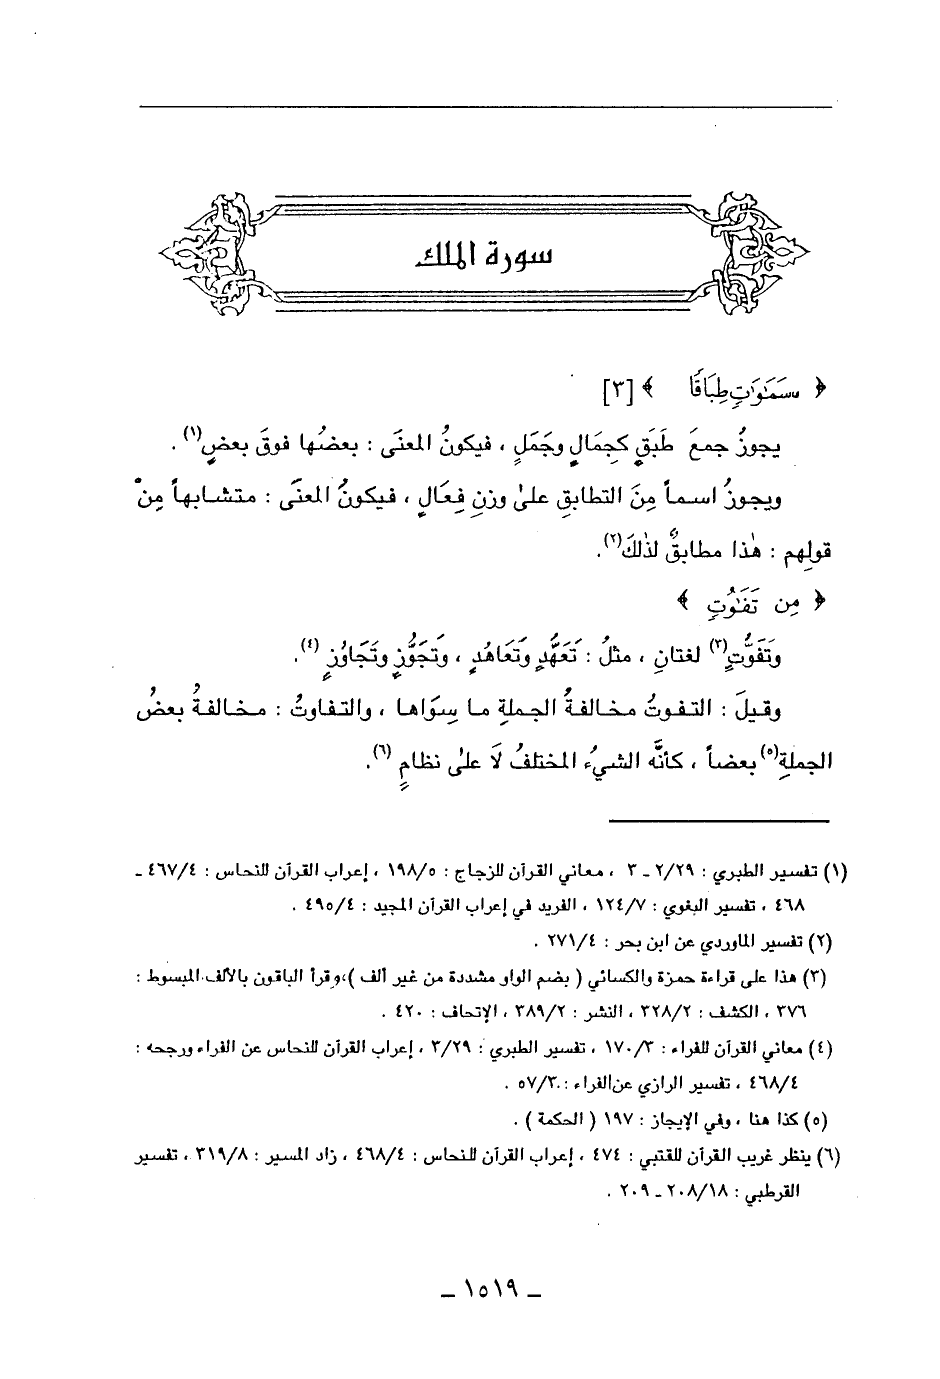 سورة الملك
﴿ سَمَٰوَٰتٍ طِبَاقًا ﴾ [٣]
يجوزُ جمعَ طَبَقٍ كجِمَالٍ وجَمَلٍ ، فيكونُ المعنَى : بعضُها فوقَ بعضٍ(١) .
ويجوزُ اسماً مِنَ التطابقِ علىٰ وزنِ فِعَالٍ ، فيكونُ المعنَى : متشابهاً مِنْ
قولِهم : هٰذا مطابقٌ لذٰلكَ(٢).
﴿ مِن تَفَٰوُتٍ ﴾
وتَفَوُّتٍ(٣) لغتانِ ، مثلُ : تَعَهُّدٍ وتَعَاهُدٍ ، وتَجَوُّزٍ وتَجَاوُزٍ(٤).
وقيلَ : التفوتُ مخالفةُ الجملةِ ما سِوَاها ، والتفاوتُ : مخالفةُ بعضُ
الجملةِ(٥) بعضاً ، كأنَّه الشيءُ المختلفُ لَا علىٰ نظامٍ(٦).
(١) تفسير الطبري : ٢/٢٩ ـ ٣ ، معاني القرآن للزجاج : ١٩٨/٥ ، إعراب القرآن للنحاس : ٤٦٧/٤ ـ
٤٦٨ ، تفسير البغوي : ١٢٤/٧ ، الفريد في إعراب القرآن المجيد : ٤٩٥/٤ .
(٢) تفسير الماوردي عن ابن بحر : ٢٧١/٤ .
(٣) هذا على قراءة حمزة والكسائي ( بضم الواو مشددة من غير ألف )، وقرأ الباقون بالألف. المبسوط :
٣٧٦ ، الكشف : ٣٢٨/٢ ، النشر : ٣٨٩/٢ ، الإتحاف : ٤٢٠ .
(٤) معاني القرآن للفراء : ١٧٠/٣ ، تفسير الطبري : ٣/٢٩ ، إعراب القرآن للنحاس عن الفراء ورجحه :
٤٦٨/٤ ، تفسير الرازي عن الفراء : ٥٧/٣٠ .
(٥) كذا هنا ، وفي الإيجاز : ١٩٧ ( الحكمة ) .
(٦) ينظر غريب القرآن للقتبي : ٤٧٤ ، إعراب القرآن للنحاس : ٤٦٨/٤ ، زاد المسير : ٣١٩/٨ ، تفسير
القرطبي : ٢٠٨/١٨ ـ ٢٠٩ .
ـ ١٥١٩ ـ